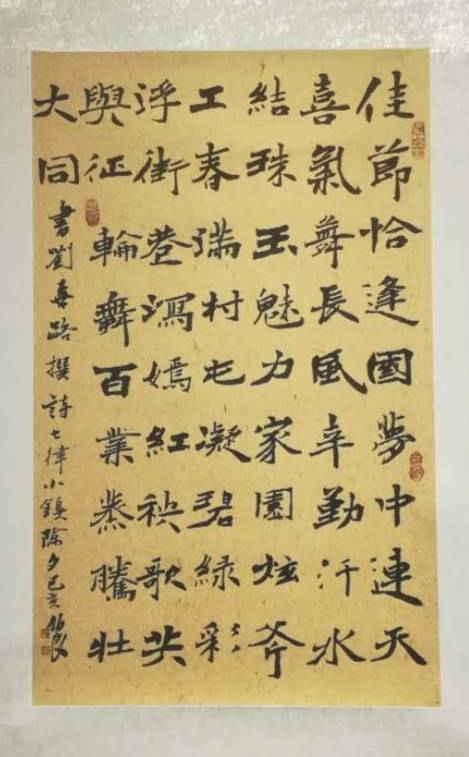 佳節恰逢國夢中連天
喜氣舞長風辛勤汗水
結珠玉魅力家園炫斧
工春滿村屯凝碧綠彩
浮街巷瀉嫣紅秧歌共
與征輪舞百業蒸騰壯
大同
書劉路撰詩七律小鎮除夕己亥